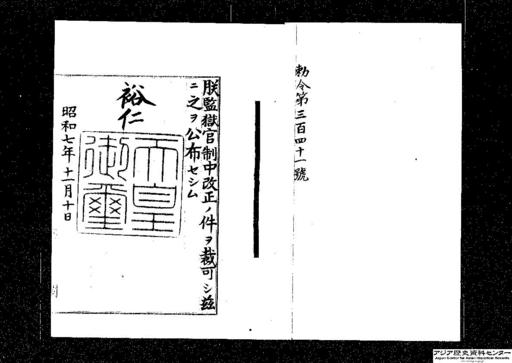 勅令第三百四十一號
朕監獄官制中改正ノ件ヲ裁可シ茲
ニ之ヲ公布セシム
裕仁
天皇
御璽
昭和七年十一月十日
アジア歴史資料センター
Japan Center for Asian Historical Records